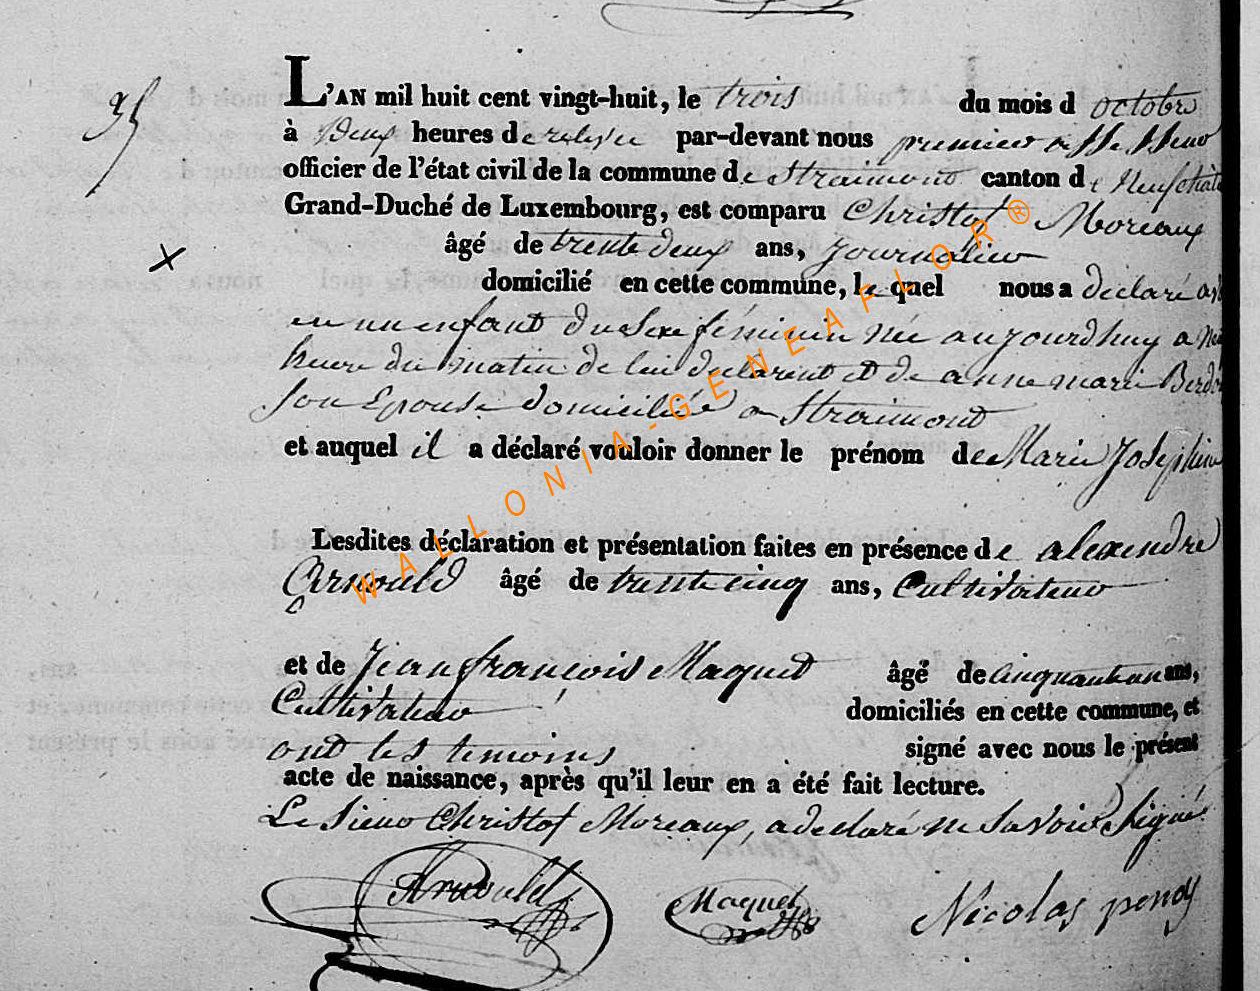 95
L'AN mil huit cent vingt-huit, le trois du mois d octobre
à Deux heures de relevée par-devant nous premier assesseur
officier de l'état civil de la commune de Straimont canton de Neufchate
Grand-Duché de Luxembourg, est comparu Christof Moreaux
âgé de trente deux ans, journalier
domicilié en cette commune, lequel nous a déclaré
un enfant du sexe féminin née aujourdhuy a
heure du matin de lui déclarent et de anne marie
son Epouse domiciliée a Straimont
et auquel il a déclaré vouloir donner le prénom de Marie Josephine
Lesdites déclaration et présentation faites en présence de alexendre
Arnould âgé de trente cinq ans, Cultivateur
et de Jean françois Maquet âgé de cinquant un ans,
Cultivateur domiciliés en cette commune, et
ont les temoins signé avec nous le présent
acte de naissance, après qu'il leur en a été fait lecture.
Le Sieur Christof Moreaux, a declaré ne savoir Signé
Arnould Maquet Nicolas
WALLONIA-GENEAFLOR®